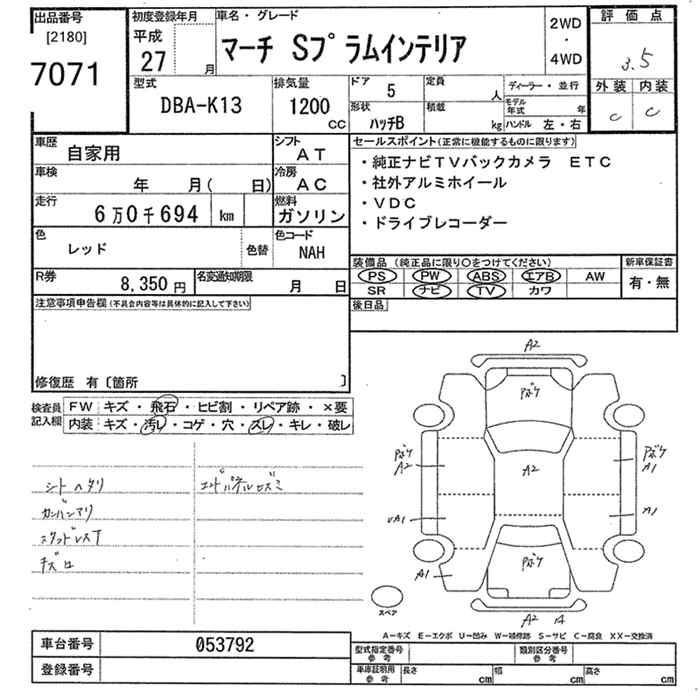 出品番号
[2180]
7071
初度登録年月
平成
27 月
車名・グレード
マーチ Sプラムインテリア
2WD
・
4WD
評価点
3.5
外装 内装
C C
型式
DBA-K13
排気量
1200
CC
ドア 5
定員 人
形状 ハッチB
積載 kg
ディーラー・並行
モデル年式 年
ハンドル 左・右
車歴 自家用
シフト AT
車検 年 月( 日)
冷房 AC
走行 6万0千694 km
燃料 ガソリン
色 レッド 色替
色コード NAH
R券 8,350円
名変通知期限 月 日
セールスポイント(正常に機能するものに限ります)
・純正ナビTVバックカメラ ETC
・社外アルミホイール
・VDC
・ドライブレコーダー
装備品(純正品に限り○をつけてください)
PS PW ABS エアB AW
SR ナビ TV カワ
新車保証書
有・無
後日品
注意事項申告欄(不具合内容等は具体的に記入して下さい)
修復歴 有〔箇所 〕
検査員記入欄
FW キズ・飛石・ヒビ割・リペア跡・×要
内装 キズ・汚レ・コゲ・穴・スレ・キレ・破レ
シートヘタリ
A2
Pボケ
Pボケ
A2
A2
Pボケ
A1
A1
A1
Pボケ
A2
スペア
A−キズ E−エクボ U−凹み W−補修跡 S−サビ C−腐食 XX−交換済
車台番号 053792
登録番号
型式指定番号 参考
類別区分番号 参考
車庫証明用 参考
長さ cm 幅 cm 高さ cm